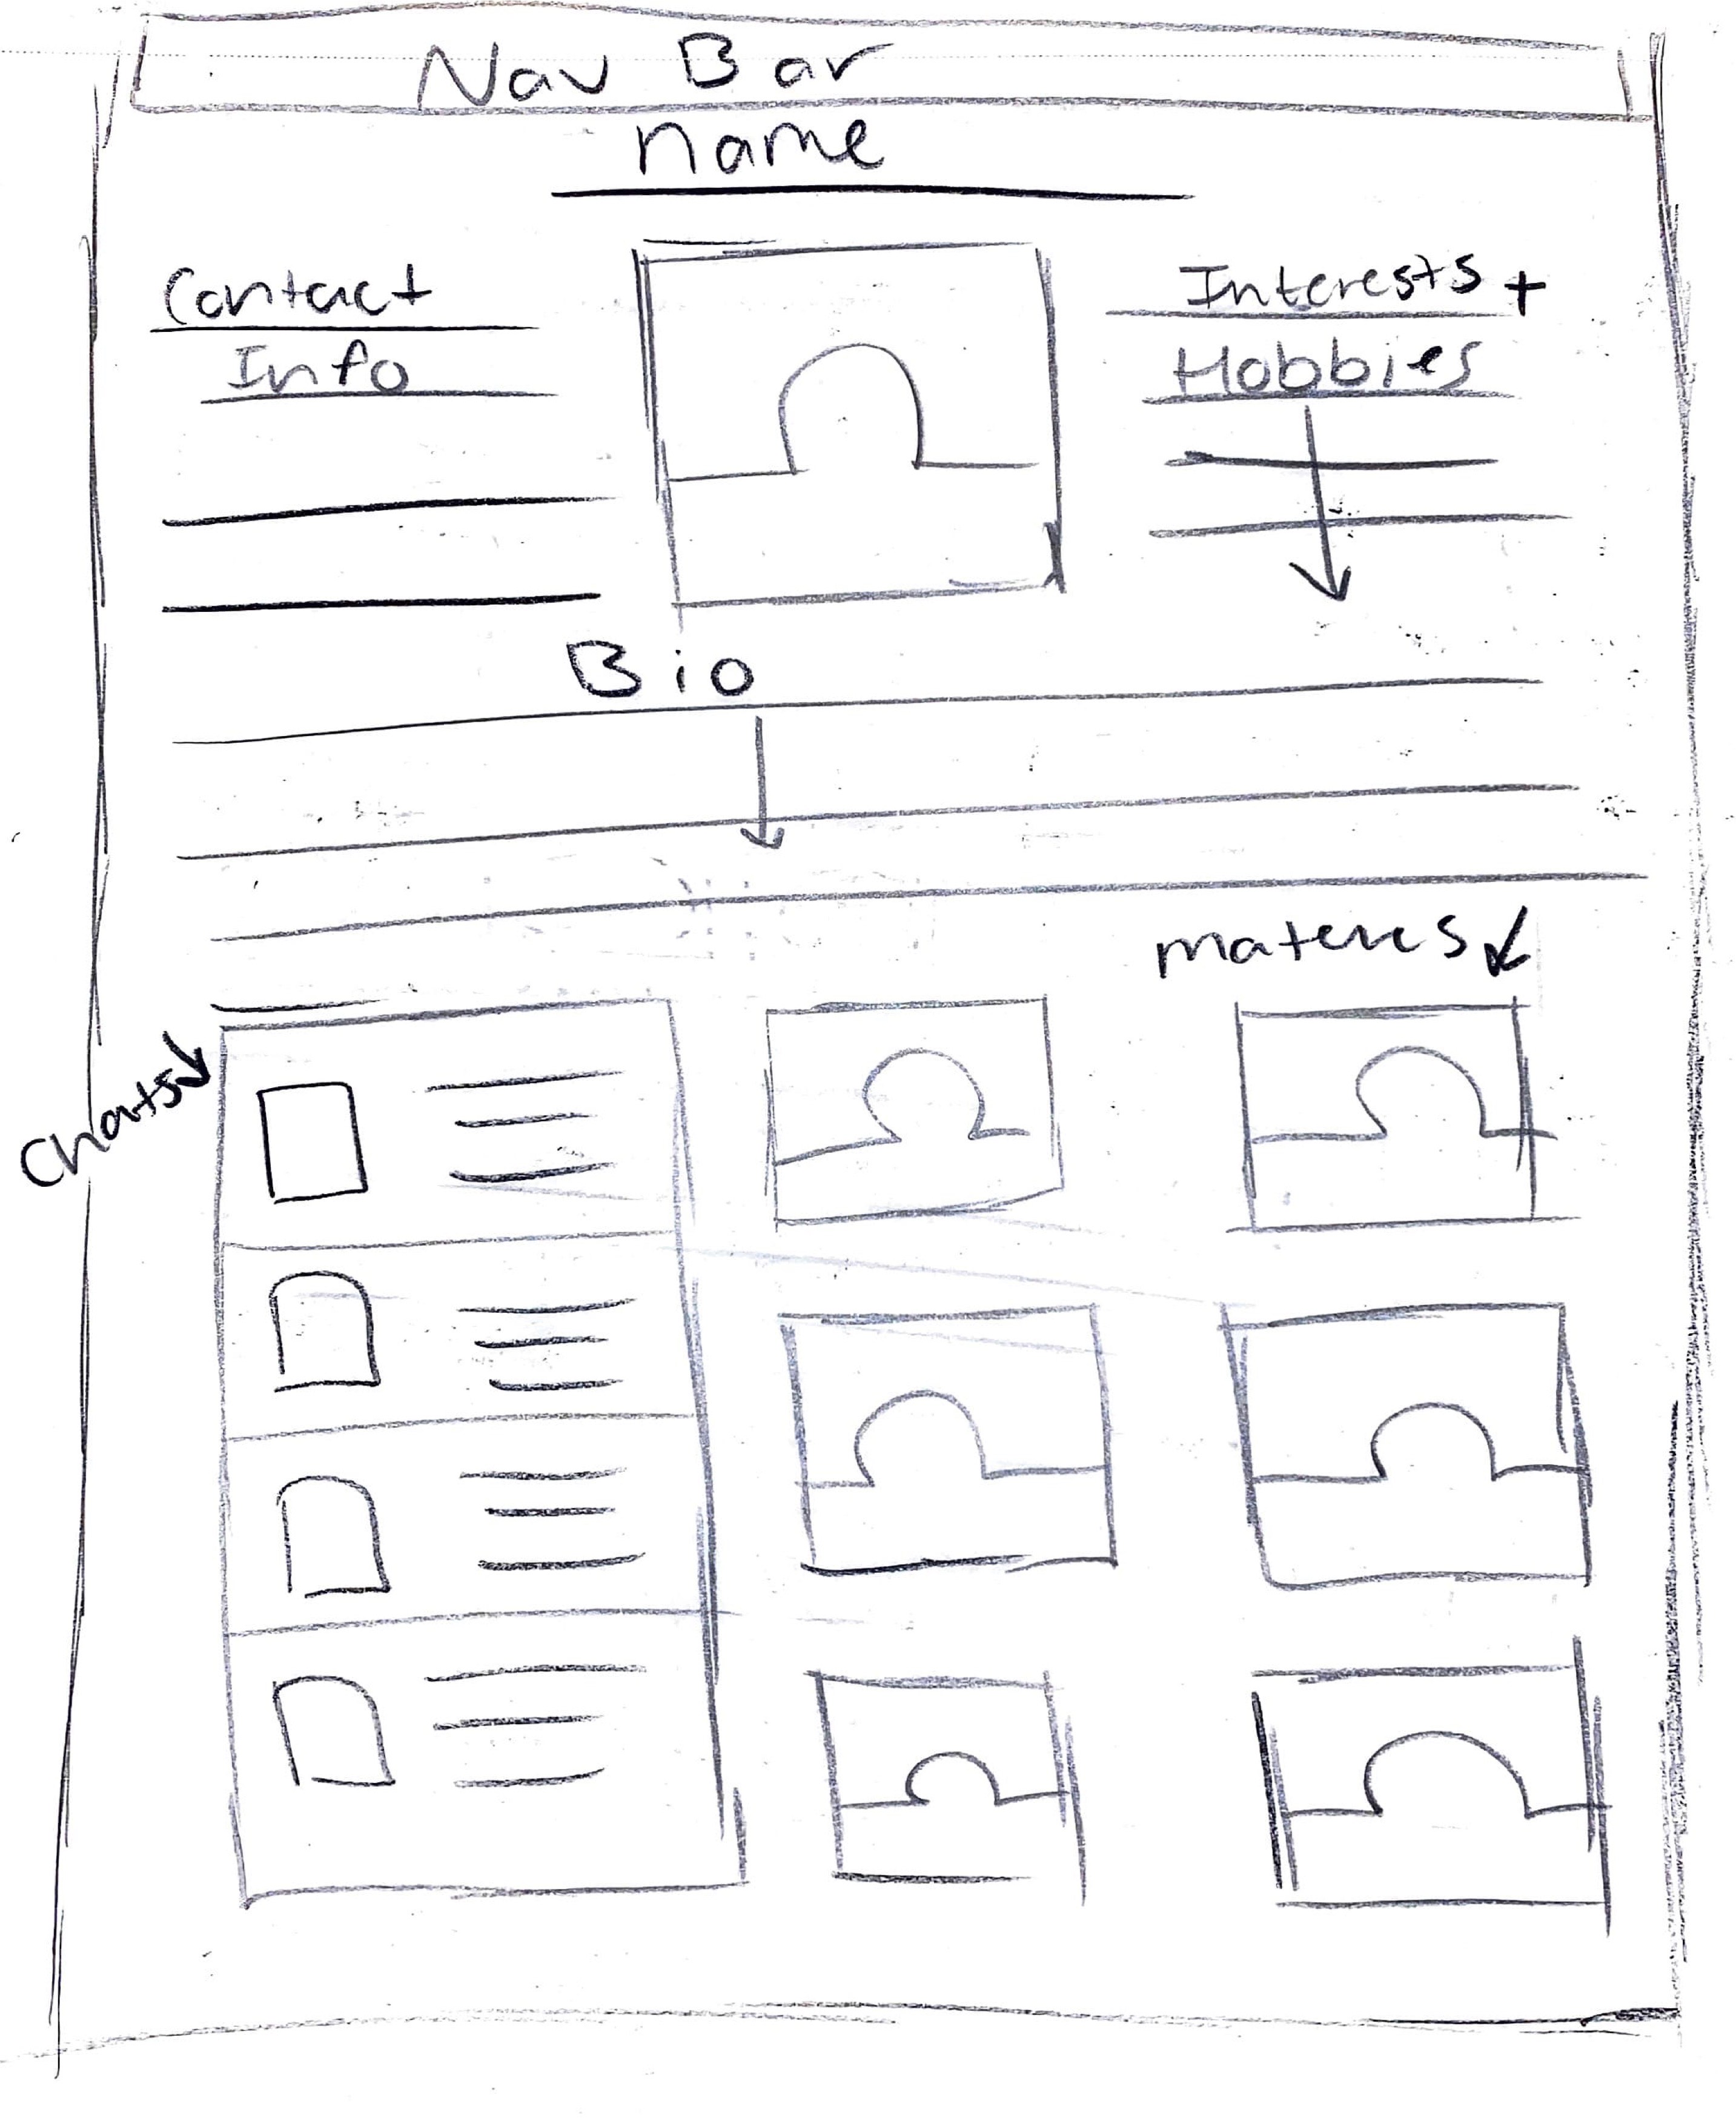 Nav Bar
Name
Contact
Info
Interests +
Hobbies
Bio
Chats